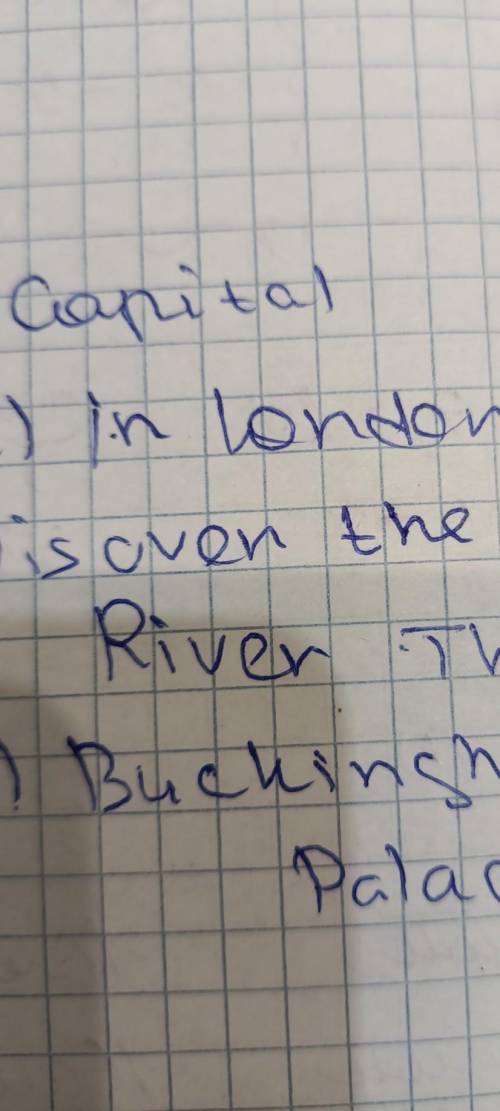 Capital
) in London
is over the
River Th
) Buckingh
Palac